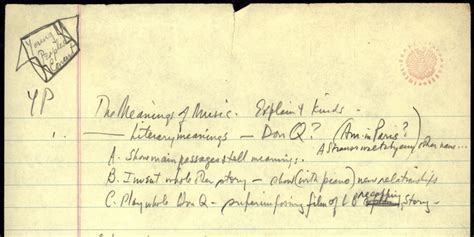 Young
People's
Concert
YP
The Meanings of Music. Explain 4 kinds -
1. Literary meanings - Don Q? (Am. in Paris?)
A Strauss waltz by any other name...
A. Show main passages & tell meanings.
B. Invent whole other story - show (with piano) new relationships
recapping
C. Play whole Don Q - superimposing film of story.